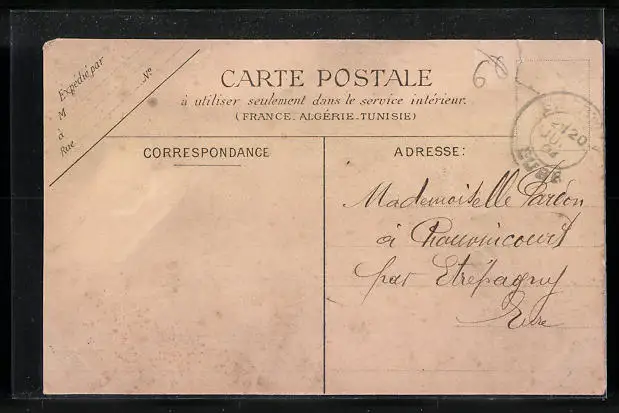 Expédié par
M
à
Rue
N°
CARTE POSTALE
à utiliser seulement dans le service intérieur.
(FRANCE_ALGÉRIE_TUNISIE)
60
CORRESPONDANCE
ADRESSE:
Mademoiselle
à
par Etrépagny
Eure
EURE